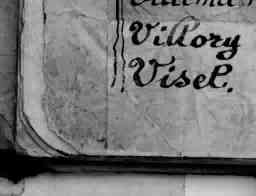 Villory
Visel.